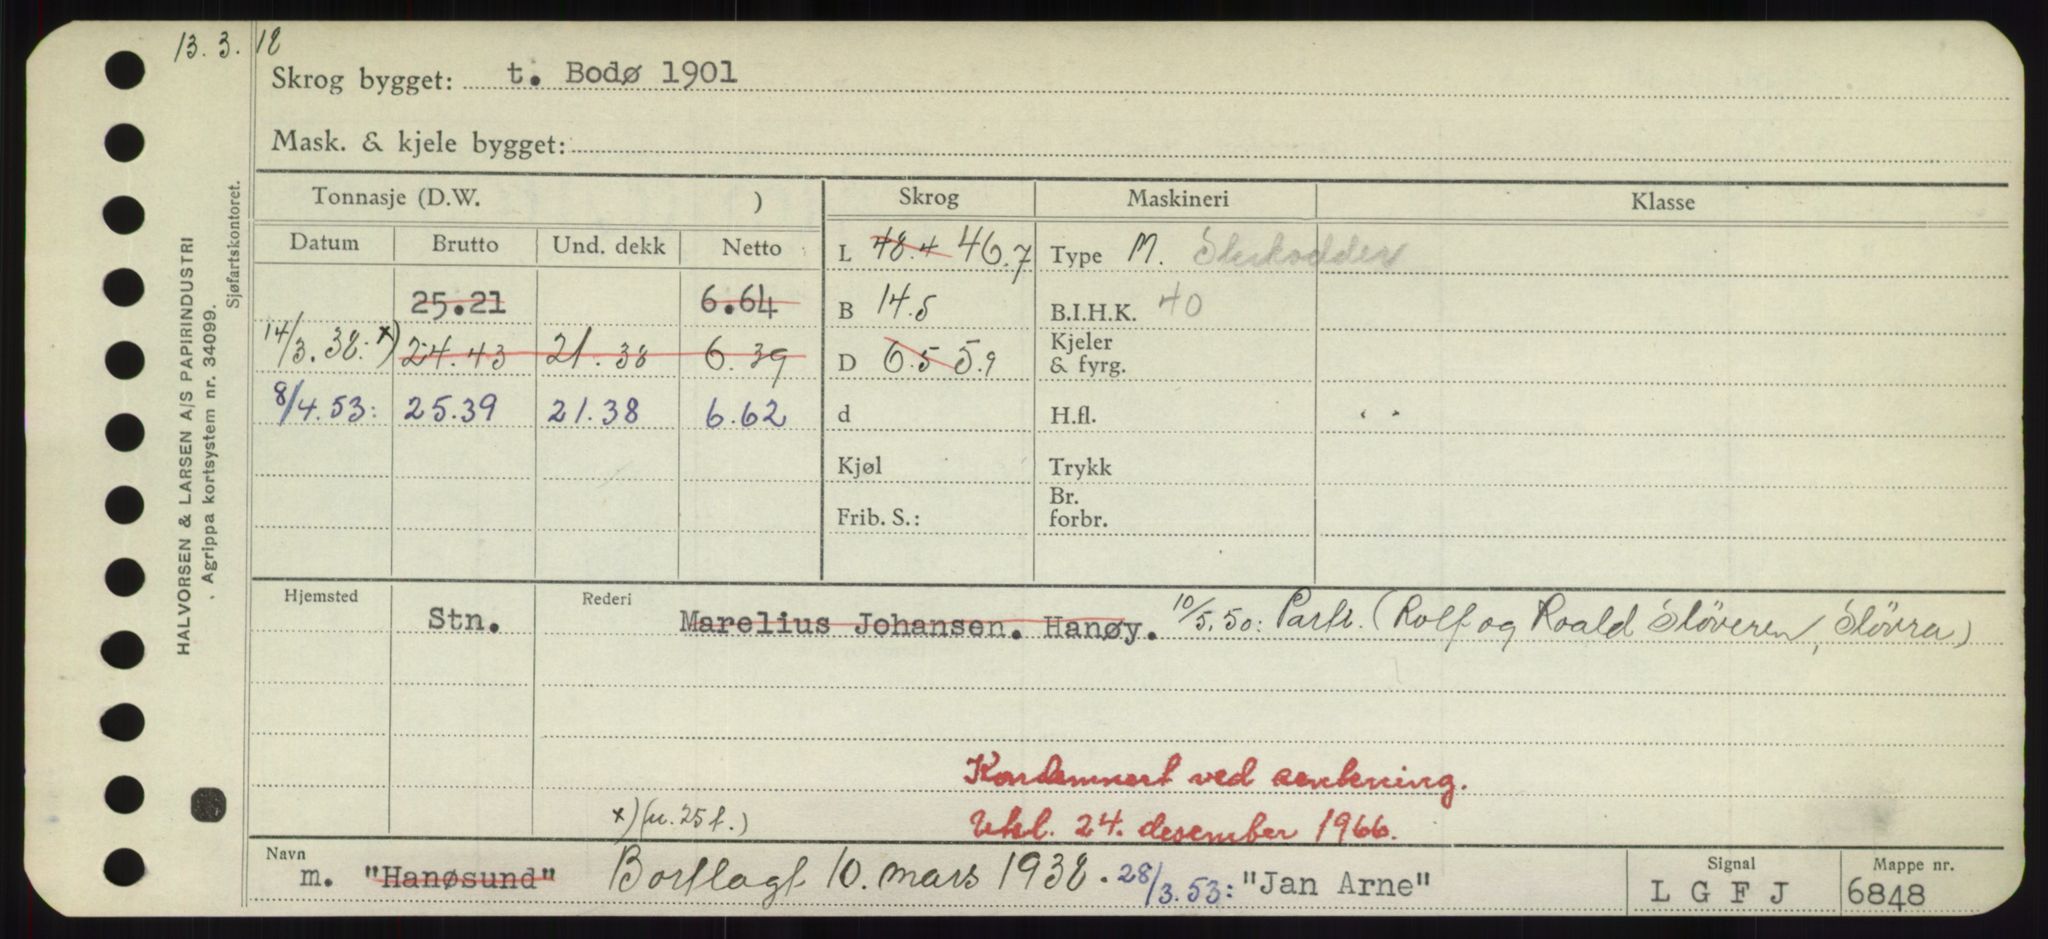 13. 3. 18
Skrog bygget: t. Bodø 1901
Mask. & kjele bygget:
HALVORSEN & LARSEN A/S PAPIRINDUSTRI
. Agrippa kortsystem nr. 34099.
Sjøfartskontoret.
Tonnasje (D.W. ) Skrog Maskineri Klasse
Datum Brutto Und. dekk Netto
L 48.4 46.7 Type M.
25.21 6.64 B 14.5 B.I.H.K. 40
14/3.38: x) 24.43 21.38 6.39 D 6.5 5.9 Kjeler & fyrg.
8/4.53: 25.39 21.38 6.62 d H.fl.
Kjøl Trykk
Frib. S.: Br. forbr.
Hjemsted Stn. Rederi Marelius Johansen. Hanøy. 10/5.50: Partr. (Rolf og Roald Sløveren, Slövra)
Kondemnert ved senkning.
x) (u. 25 f.) Uhl. 24. desember 1966.
Navn m. "Hanøsund" Bortlagt 10. mars 1938. 28/3.53: "Jan Arne" Signal L G F J Mappe nr. 6848